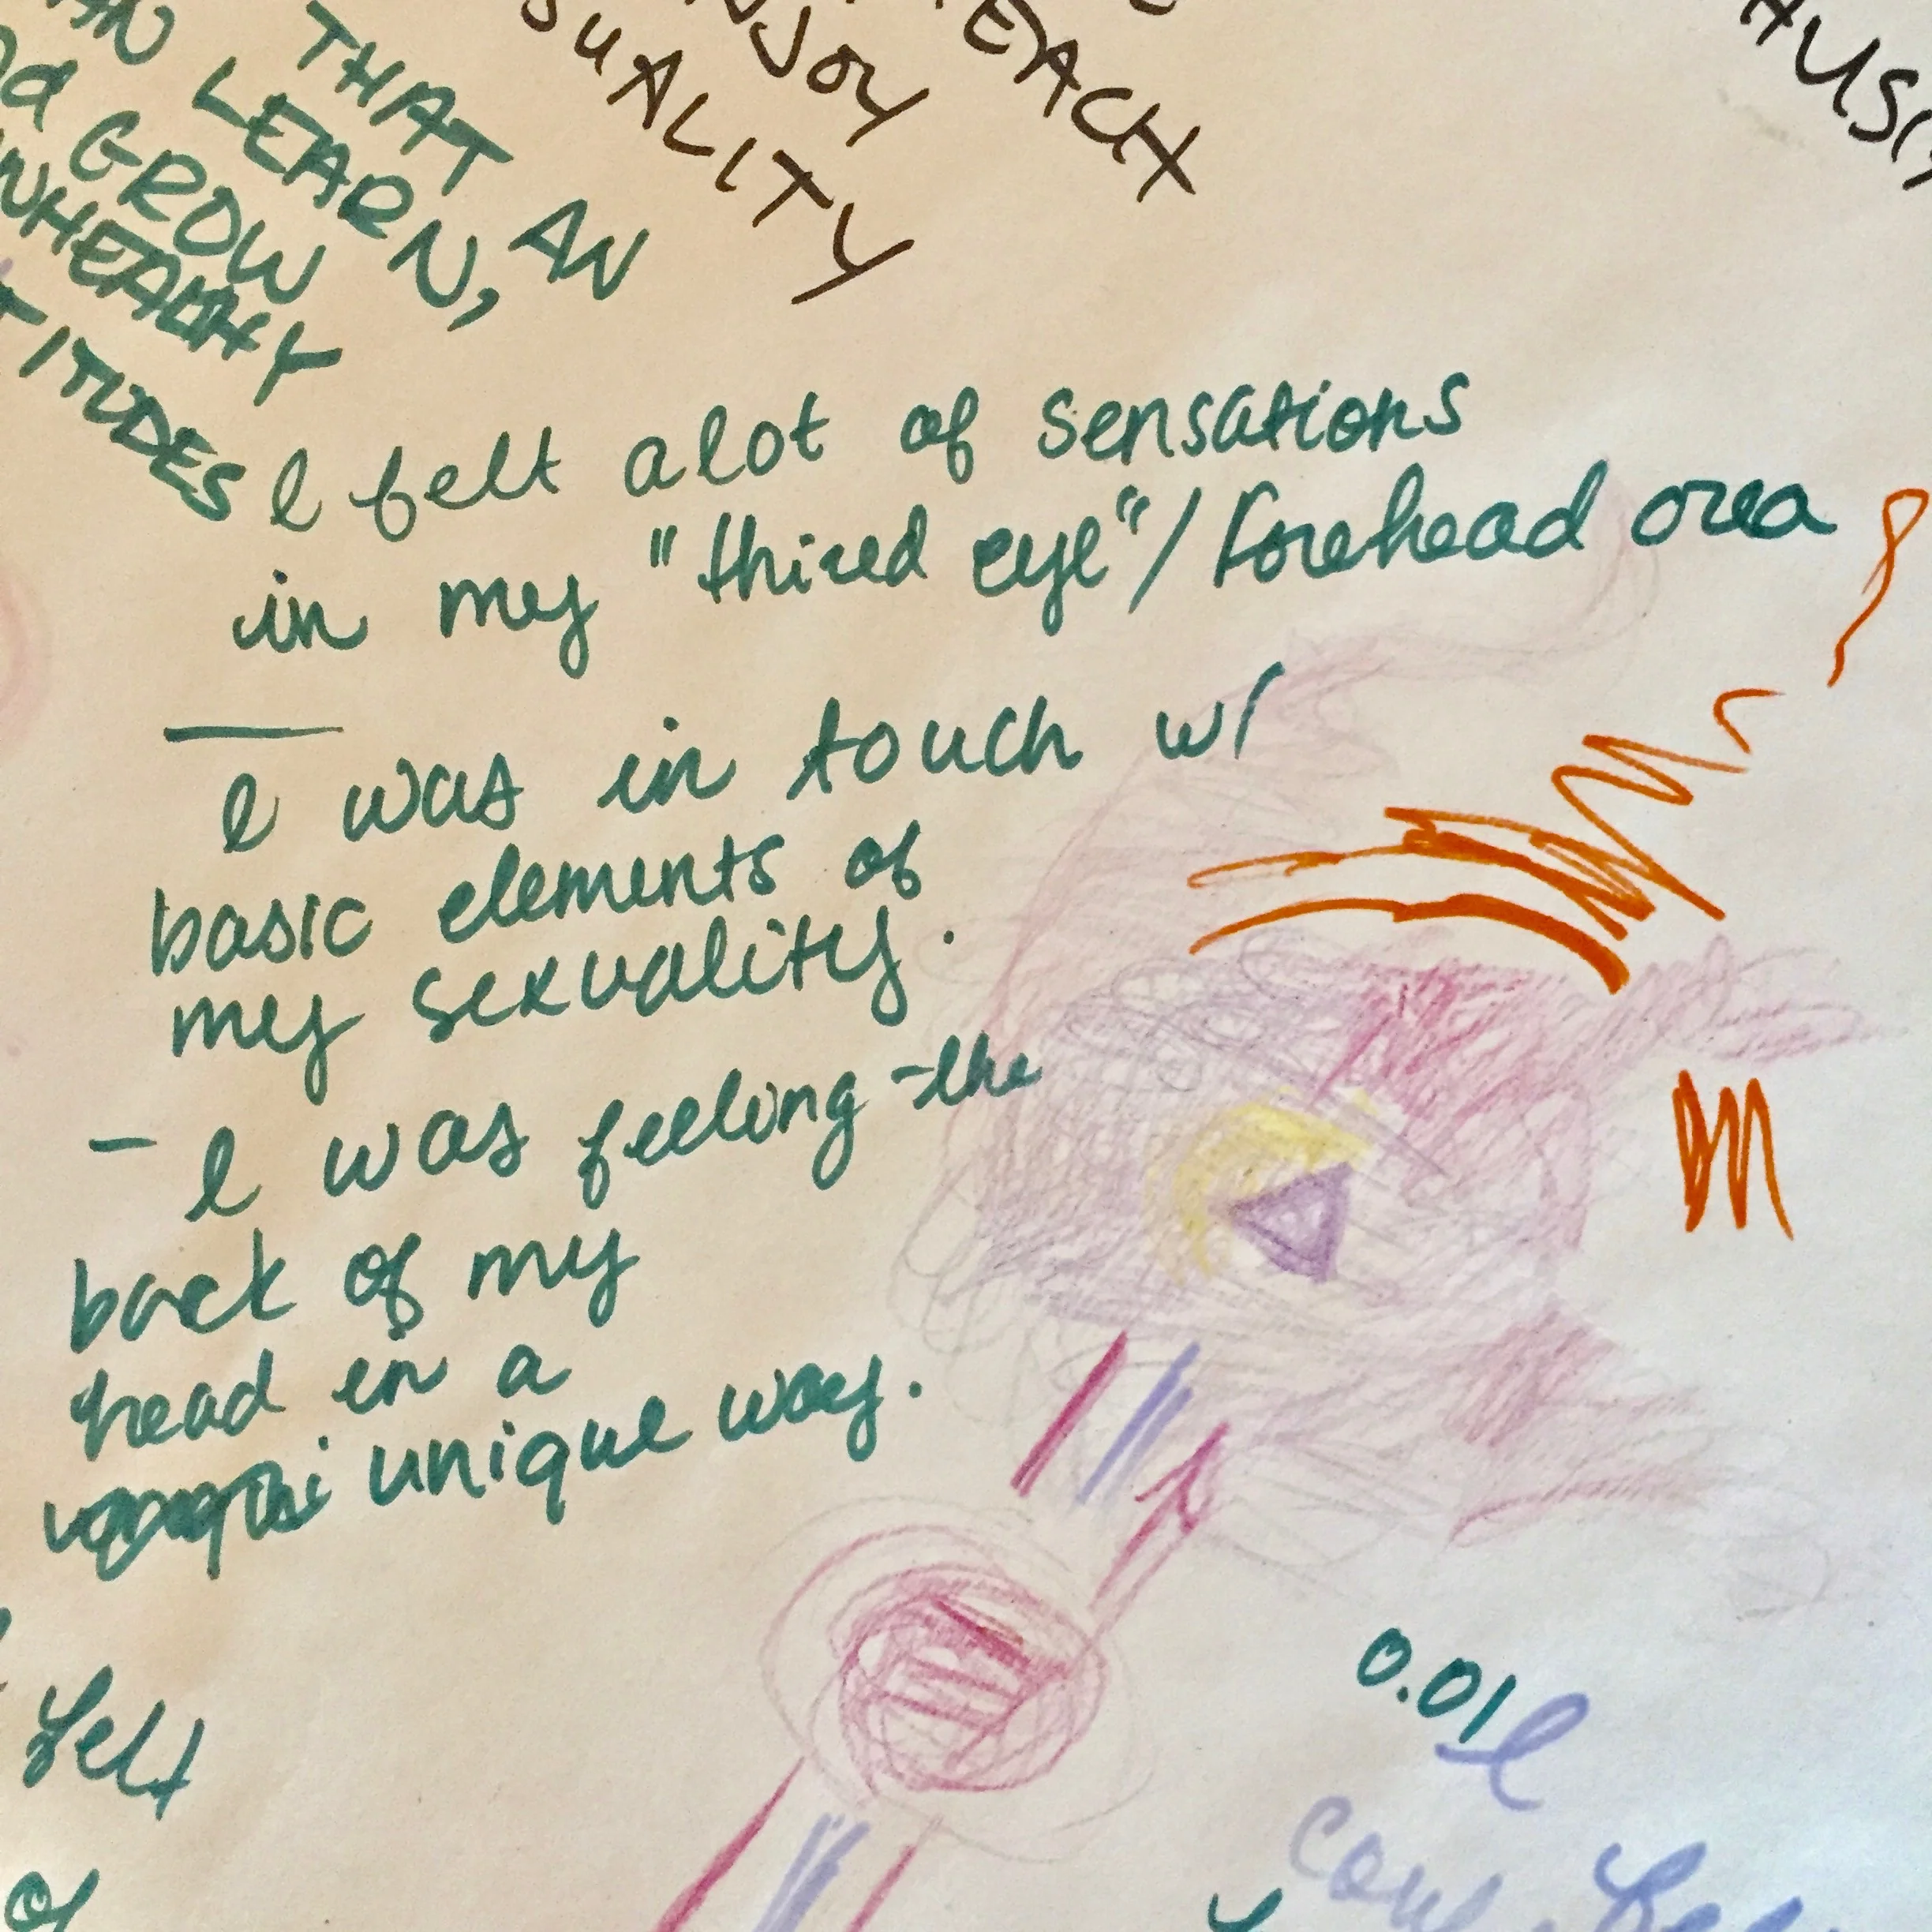 THAT AN
LEARN,
GROW
UNHEALTHY
TITUDES
SUALITY
NJOY
EACH
AUSI
I felt alot of sensations
in my "thired eye"/forehead area
— I was in touch w/
basic elements of
my sexuality.
– I was feeling the
back of my
head in a
unique way.
felt
of
0.01
I